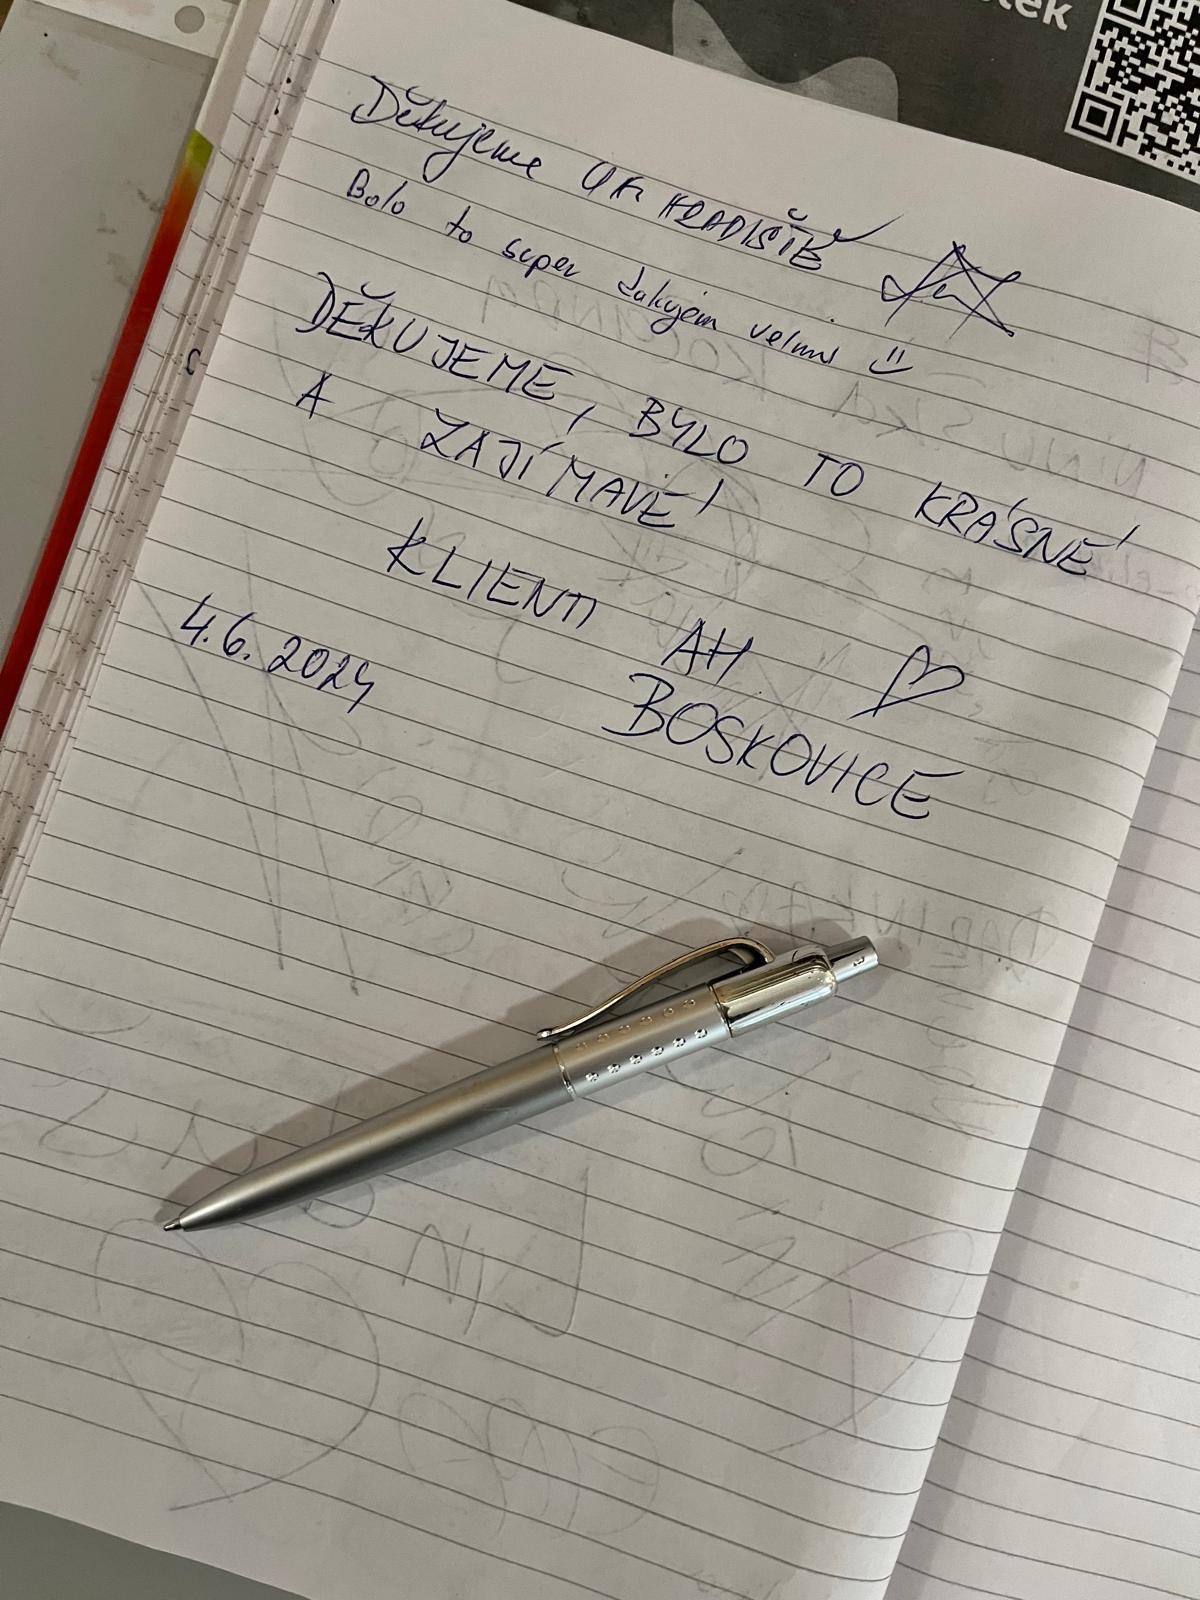 Děkujeme UH. HRADIŠTĚ
Bolo to super ďakujem velmi
DĚKUJEME, BYLO TO KRÁSNÉ
A ZAJÍMAVÉ!
KLIENTI AH
BOSKOVICE
4.6.2024